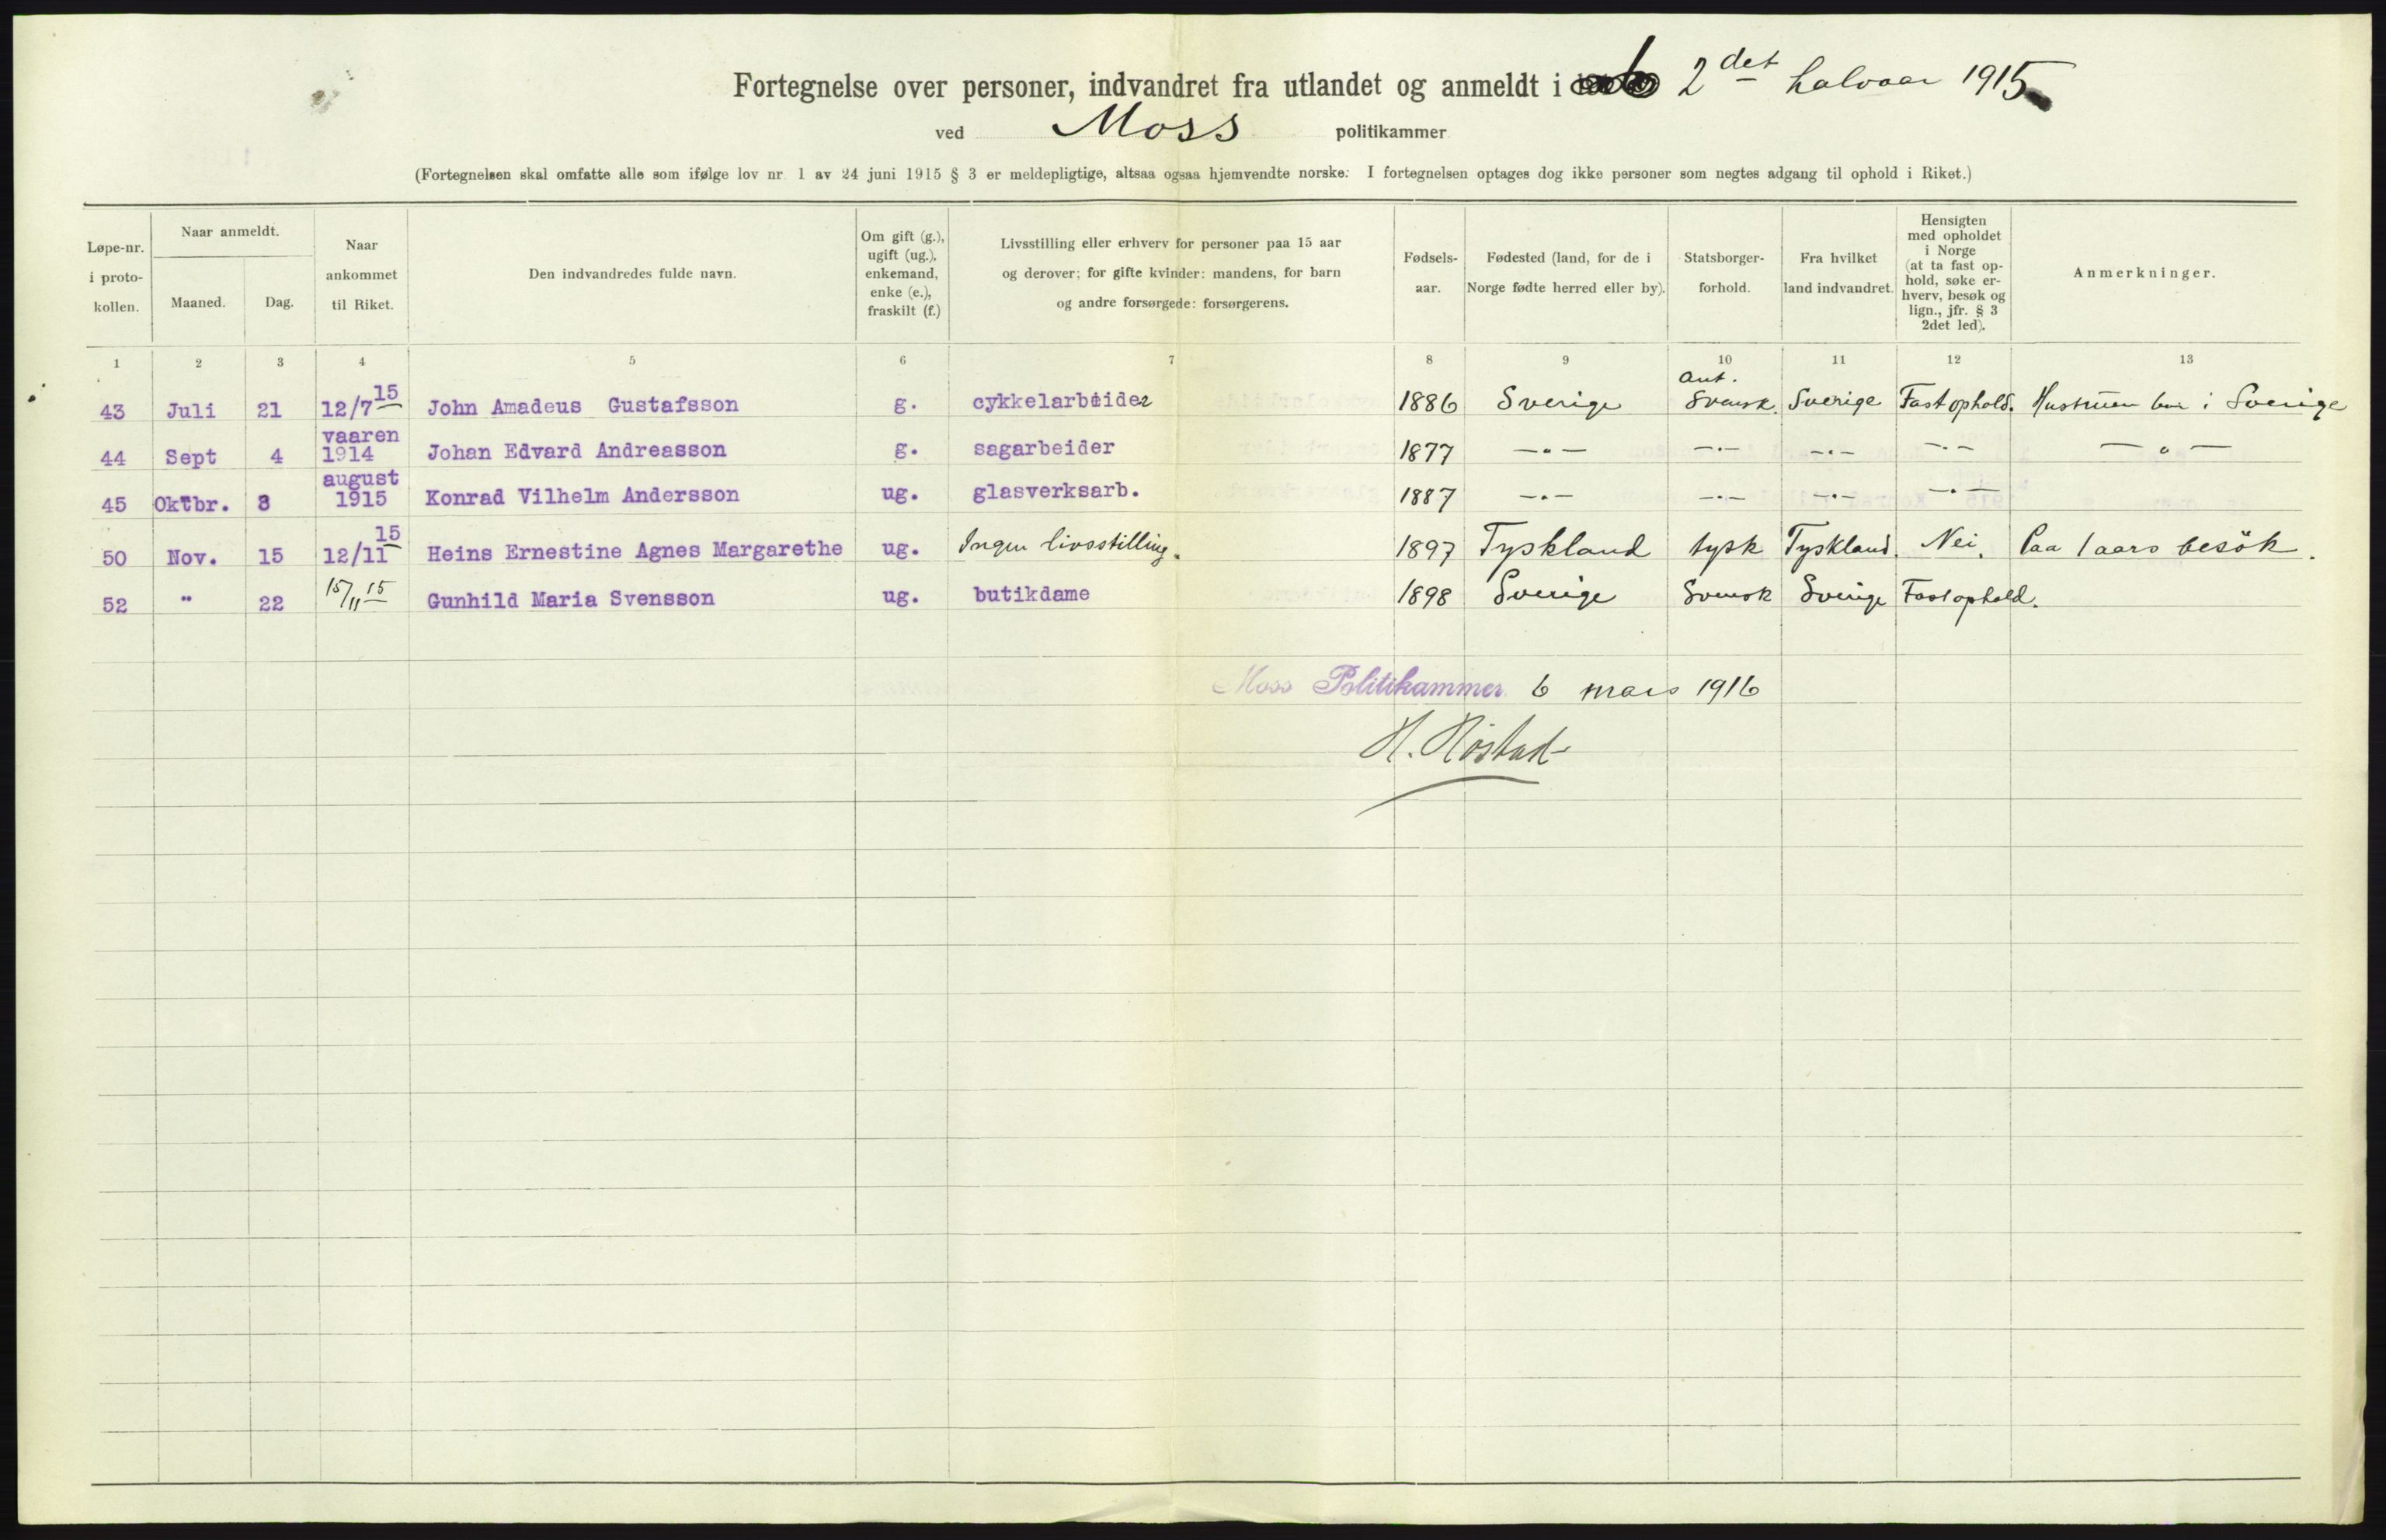 Fortegnelse over personer, indvandret fra utlandet og anmeldt i 2det halvaar 1915
ved Moss politikammer
(Fortegnelsen skal omfatte alle som ifølge lov nr. 1 av 24 juni 1915 § 3 er meldepligtige, altsaa ogsaa hjemvendte norske. I fortegnelsen optages dog ikke personer som negtes adgang til ophold i Riket.)
Løpe-nr. i proto-kollen.
Naar anmeldt.
Maaned. Dag.
Naar ankommet til Riket.
Den indvandredes fulde navn.
Om gift (g.), ugift (ug.), enkemand, enke (e.), fraskilt (f.)
Livsstilling eller erhverv for personer paa 15 aar
og derover; for gifte kvinder: mandens, for barn
og andre forsørgede: forsørgerens.
Fødsels-aar.
Fødested (land, for de i Norge fødte herred eller by).
Statsborger-forhold.
Fra hvilket land indvandret.
Hensigten med opholdet i Norge (at ta fast op-hold, søke er-hverv, besøk og lign., jfr. § 3 2det led).
Anmerkninger.
1 2 3 4 5 6 7 8 9 10 11 12 13
43 Juli 21 12/7 15 John Amadeus Gustafsson g. cykkelarbeider 1886 Sverige Ant. Svensk. Sverige Fast ophold. Hustruen bor i Sverige
44 Sept 4 vaaren 1914 Johan Edvard Andreasson g. sagarbeider 1877 —"— —"— —"— —"— —"—
45 Oktbr. 3 august 1915 Konrad Vilhelm Andersson ug. glasverksarb. 1887 —"— —"— —"— —"—
50 Nov. 15 12/11 15 Heins Ernestine Agnes Margarethe ug. Ingen livsstilling. 1897 Tyskland tysk Tyskland. Nei. Paa 1 aars besök.
52 " 22 15/11 15 Gunhild Maria Svensson ug. butikdame 1898 Sverige Svensk Sverige Fast ophold.
Moss Politikammer 6 mars 1916
H. Höstad